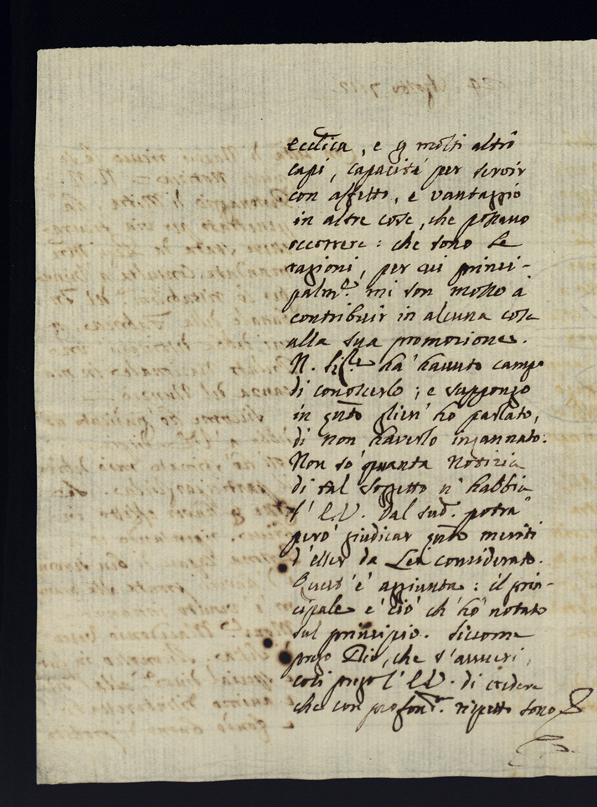 ecclića, e p molti altri
capi, capacità per servir
con affetto, e vantaggio
in altre cose, che possano
occorrere: che sono le
ragioni, per cui princi-
palm.e mi son mosso à
contribuir in alcuna cosa
alla sua promozione.
N. Sig.re ha havuto campo
di conoscerlo; e suppongo
in quãto glien' hò parlato,
di non haverlo ingannato.
Non sò quanta notizia
di tal soggetto n' habbia
l' E.V. Dal sud.o potrà
però giudicar quãto meriti
d'esser da Lei considerato.
Quest' è aggiunta: il prin-
cipale è ciò ch' hò notato
sul principio. Siccome
prego Dio, che s'avveri,
così prego l' E.V. di credere
che con profond.mo rispetto sono